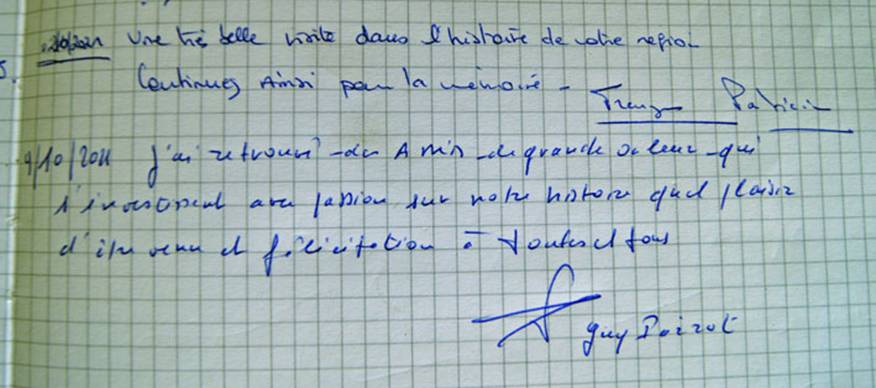 Une trè belle visite dans l'histoire de votre region
Continuez Ainsi pour la mémoire -
Patricia
9/10/2011 j'ai retrouvé des Amis de grande valeur qui
s'investissent avec passion sur notre histoire quel plaisir
d'être venu et félicitation à toutes et tous
guy Poirot